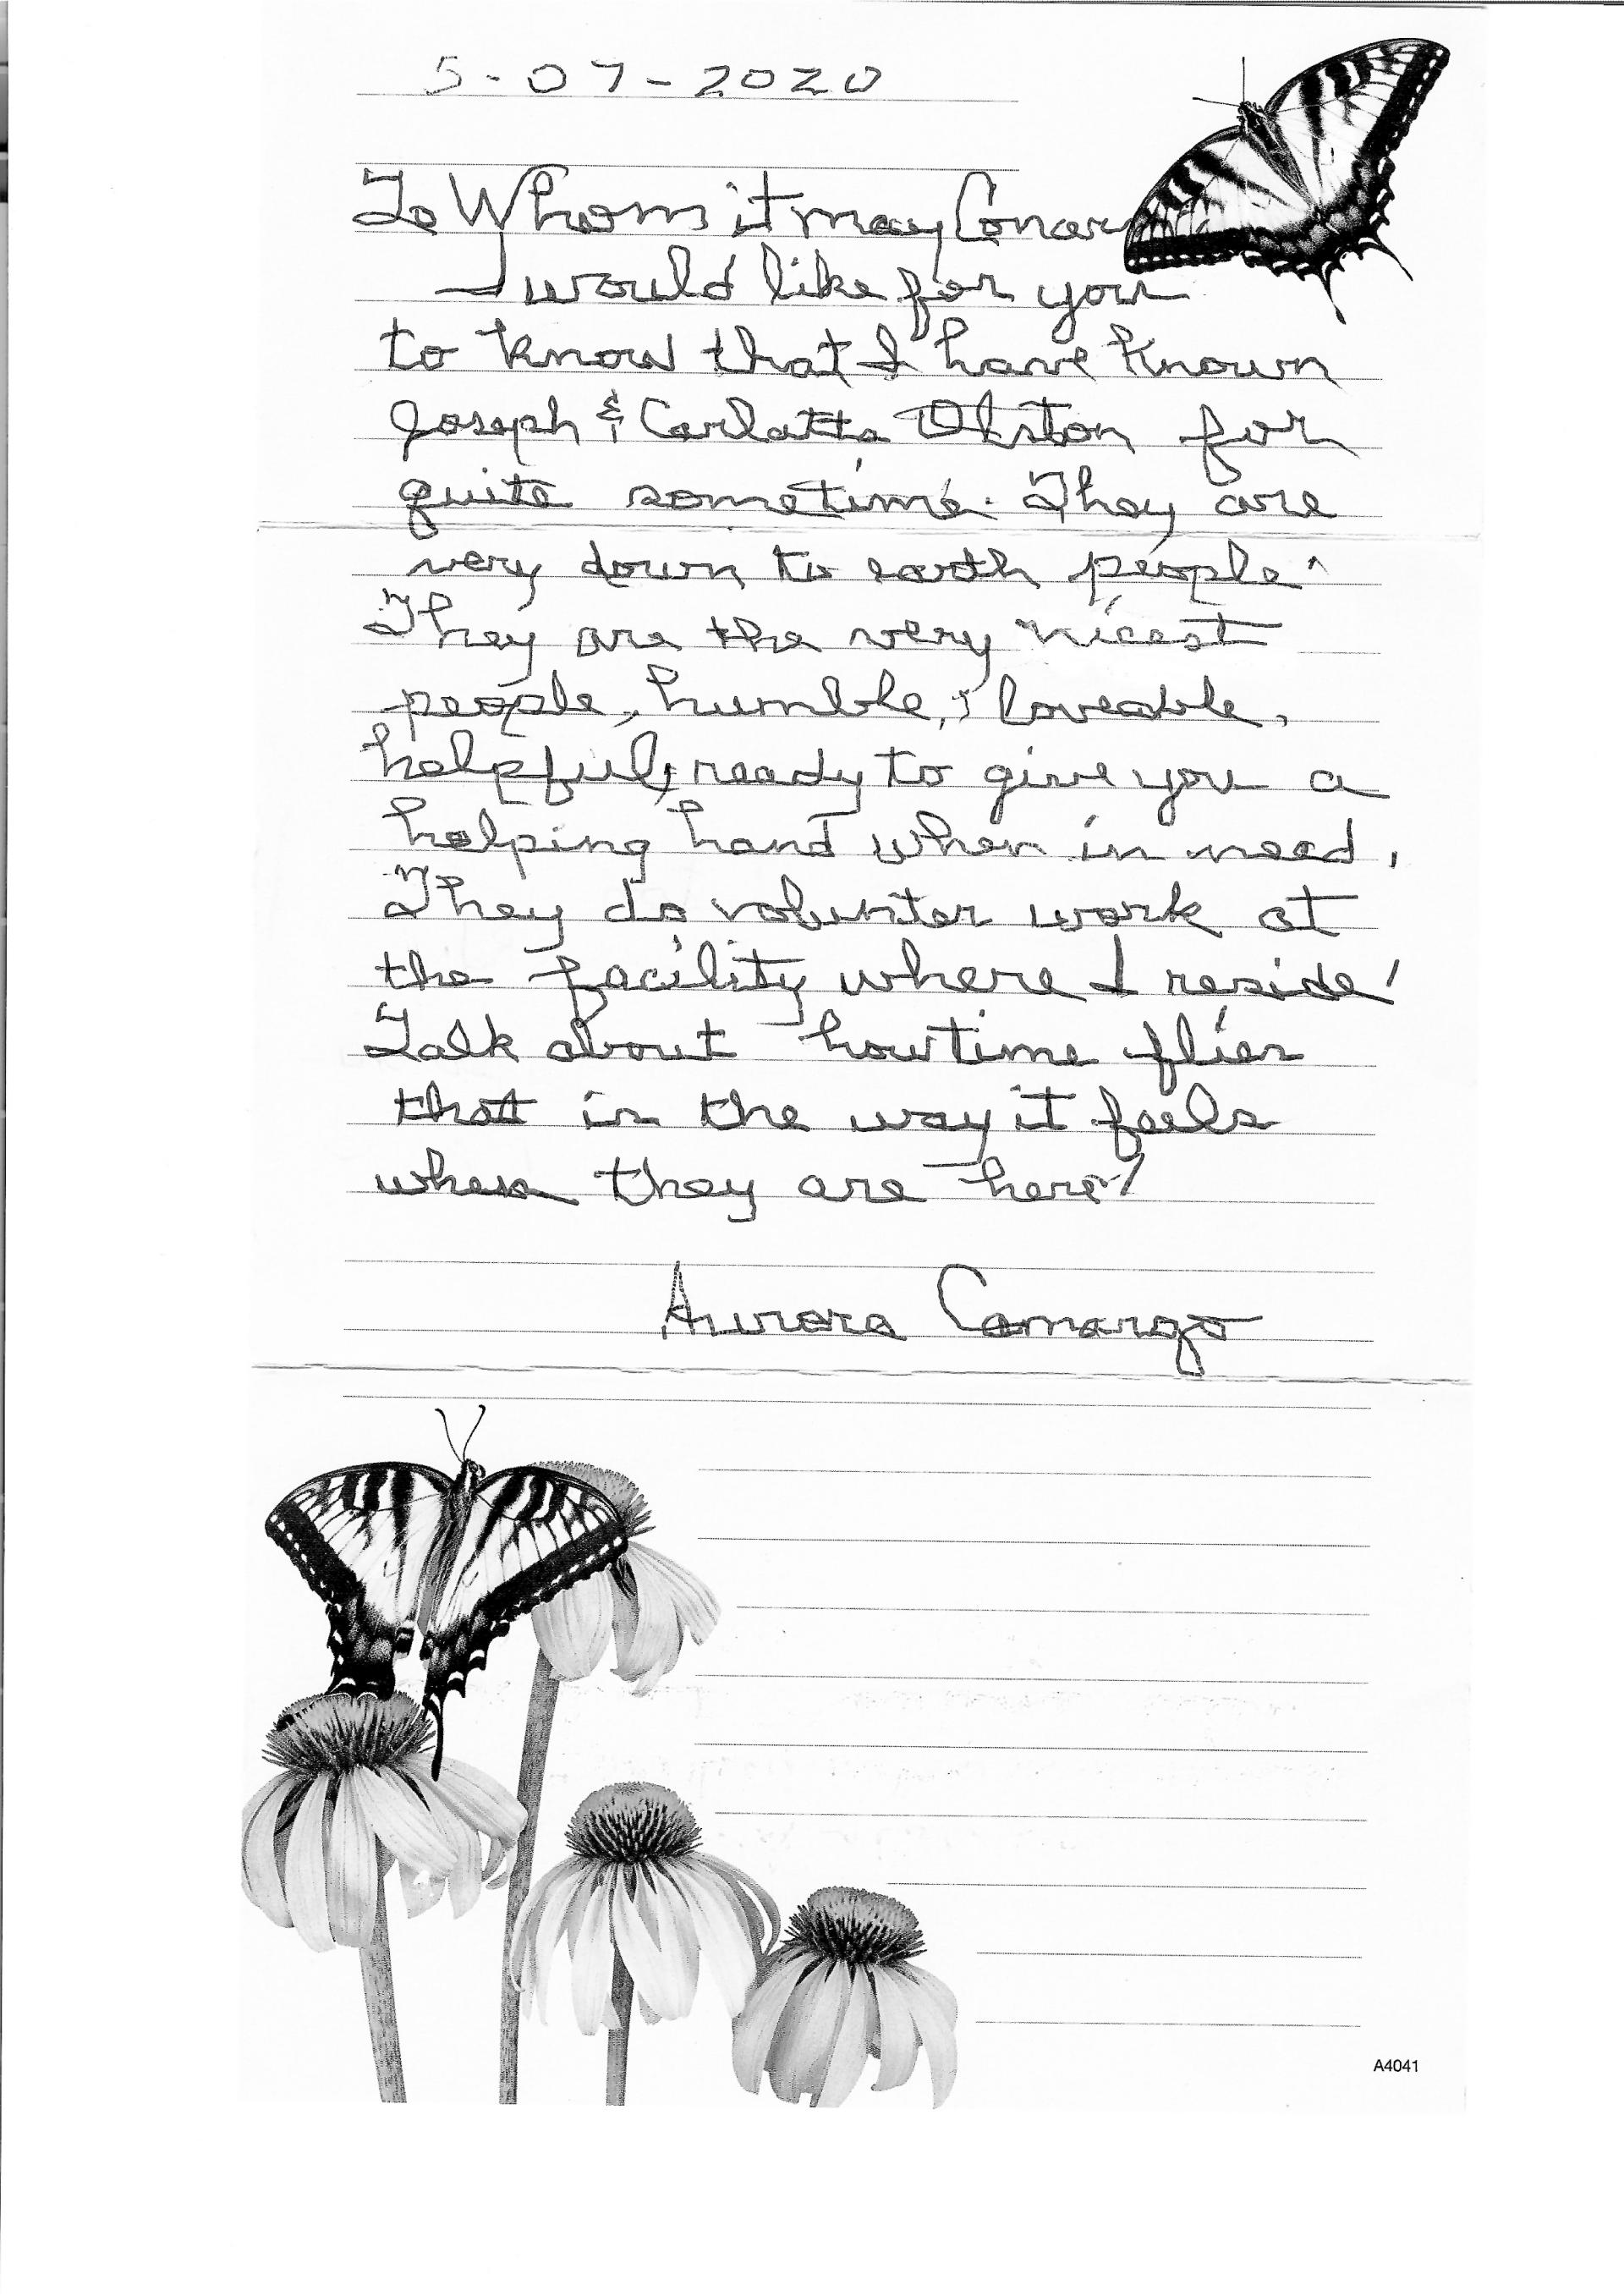 5-07-2020
To Whom it may Concern
I would like for you
to know that I have known
Joseph & Carlatta Olston for
quite sometime. They are
very down to earth people.
They are the very nicest
people, humble, & loveable,
helpful, ready to give you a
helping hand when in need.
They do volunter work at
the facility where I reside!
Talk about how time flies
that is the way it feels
when they are here!
Aurora Camargo
A4041